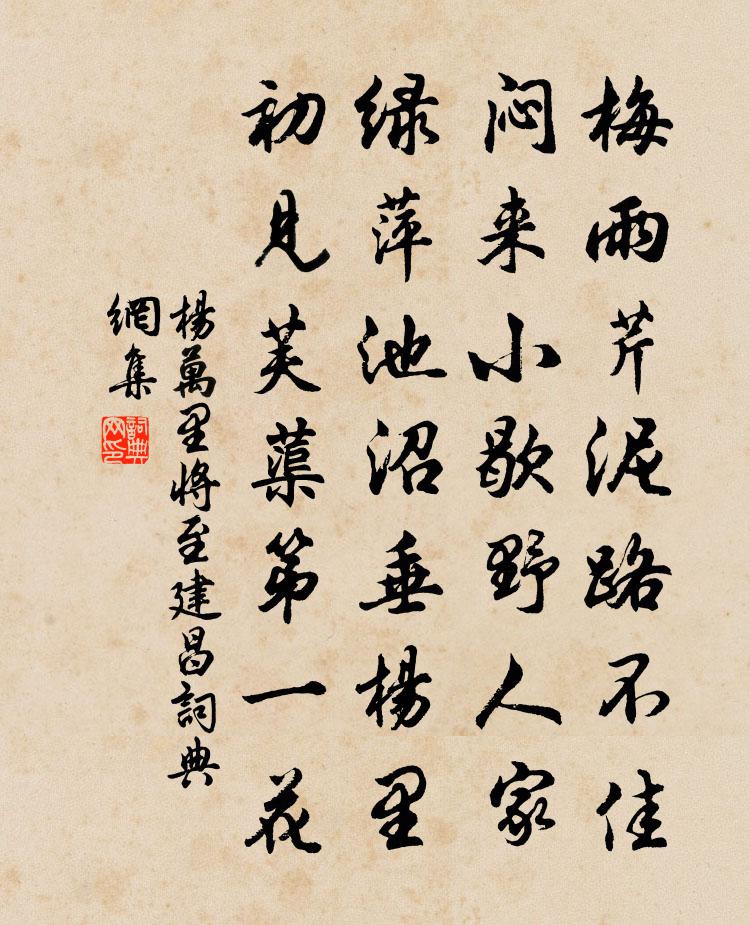 梅雨芹泥路不佳
闷来小歇野人家
绿萍池沼垂杨里
初见芙蕖第一花
楊萬里將至建昌詞典
網集
詞典
网印